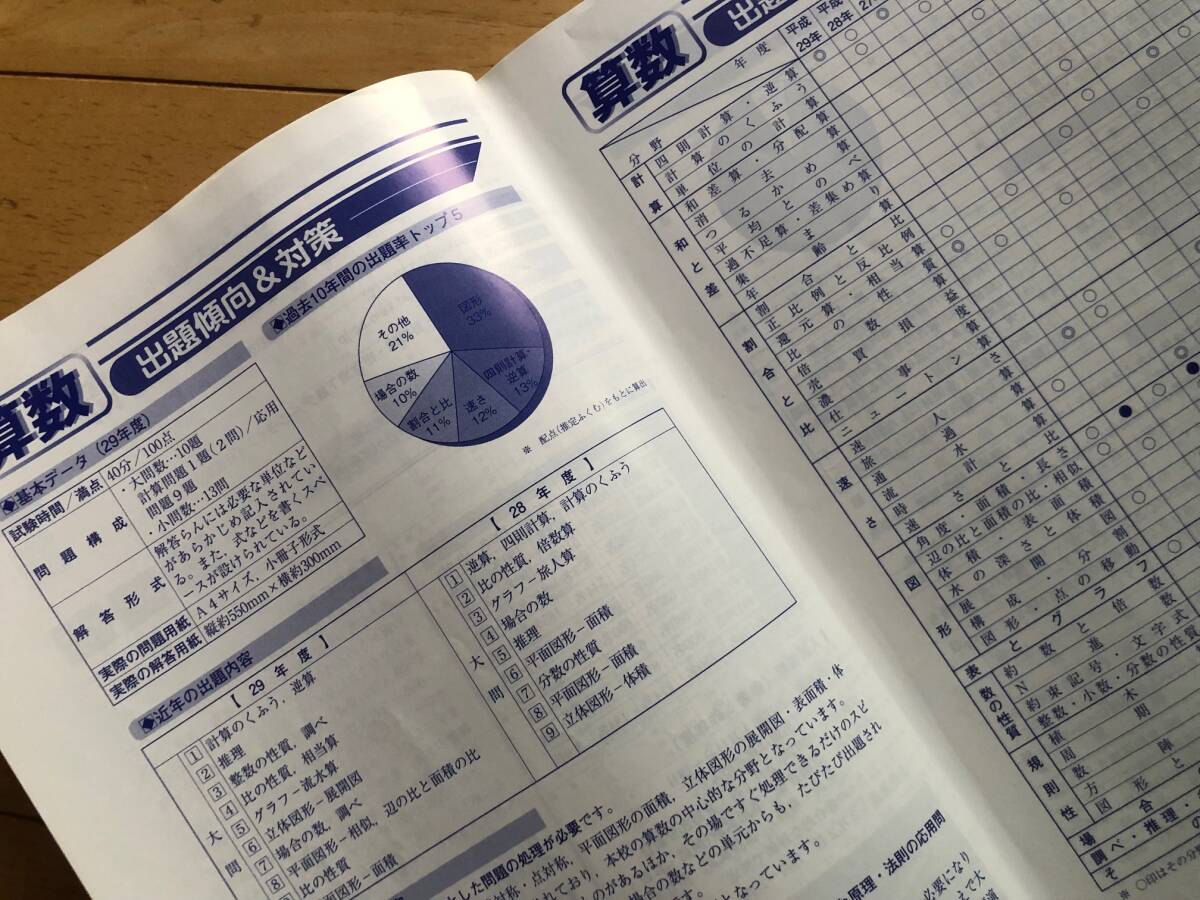 算数
出題傾向&対策
◆基本データ(29年度)
試験時間/満点
40分/100点
問題構成
・大問数…10題
計算問題1題(2問)/応用
問題9題
・小問数…13問
解答形式
解答らんには必要な単位など
があらかじめ記入されてい
る。また、式などを書くスペ
ースが設けられている。
実際の問題用紙
A4サイズ,小冊子形式
実際の解答用紙
縦約550mm×横約300mm
◆過去10年間の出題率トップ5
図形
33%
四則計算・
逆算
13%
速さ
12%
割合と比
11%
場合の数
10%
その他
21%
※ 配点(推定ふくむ)をもとに算出
◆近年の出題内容
【 29 年 度 】
大問
1 計算のくふう,逆算
2 推理
3 整数の性質,調べ
4 比の性質,相当算
5 グラフ―流水算
6 立体図形―展開図
7 場合の数,調べ
8 平面図形―相似,辺の比と面積の比
比の性質
図形―面積
【 28 年 度 】
大問
1 逆算,四則計算,計算のくふう
2 比の性質,倍数算
3 グラフ―旅人算
4 場合の数
5 推理
6 平面図形―面積
7 分数の性質
8 平面図形―面積
9 立体図形―体積
した問題の処理が必要です。
対称・点対称,平面図形の面積,立体図形の展開図・表面積・体
れており,本校の算数の中心的な分野となっています。
ものがあるほか,その場ですぐ処理できるだけのスピ
場合の数などの単元からも,たびたび出題され
となっています。
原理・法則の応用問
必要になり
算数
出題
年度
平成29年
平成28年
27
分野
計算
四則計算・逆算
計算のくふう
単位の計算
和と差
和差算・分配算
消去算
つるかめ算
平均とのべ
過不足算・差集め算
集まり
年齢算
割合と比
割合と比
正比例と反比例
還元算・相当算
比の性質
倍数算
売買損益
濃度
仕事算
ニュートン算
速さ
速さ
旅人算
通過算
流水算
時計算
速さと比
図形
角度・面積・長さ
辺の比と面積の比・相似
体積・表面積
水の深さと体積
展開図
構成・分割
図形・点の移動
表とグラフ
数の性質
約数と倍数
N進数
約束記号・文字式
整数・小数・分数の性質
規則性
植木算
周期算
数列
方陣算
図形と
場合
調べ・推理・
そ
※ ○印はその分